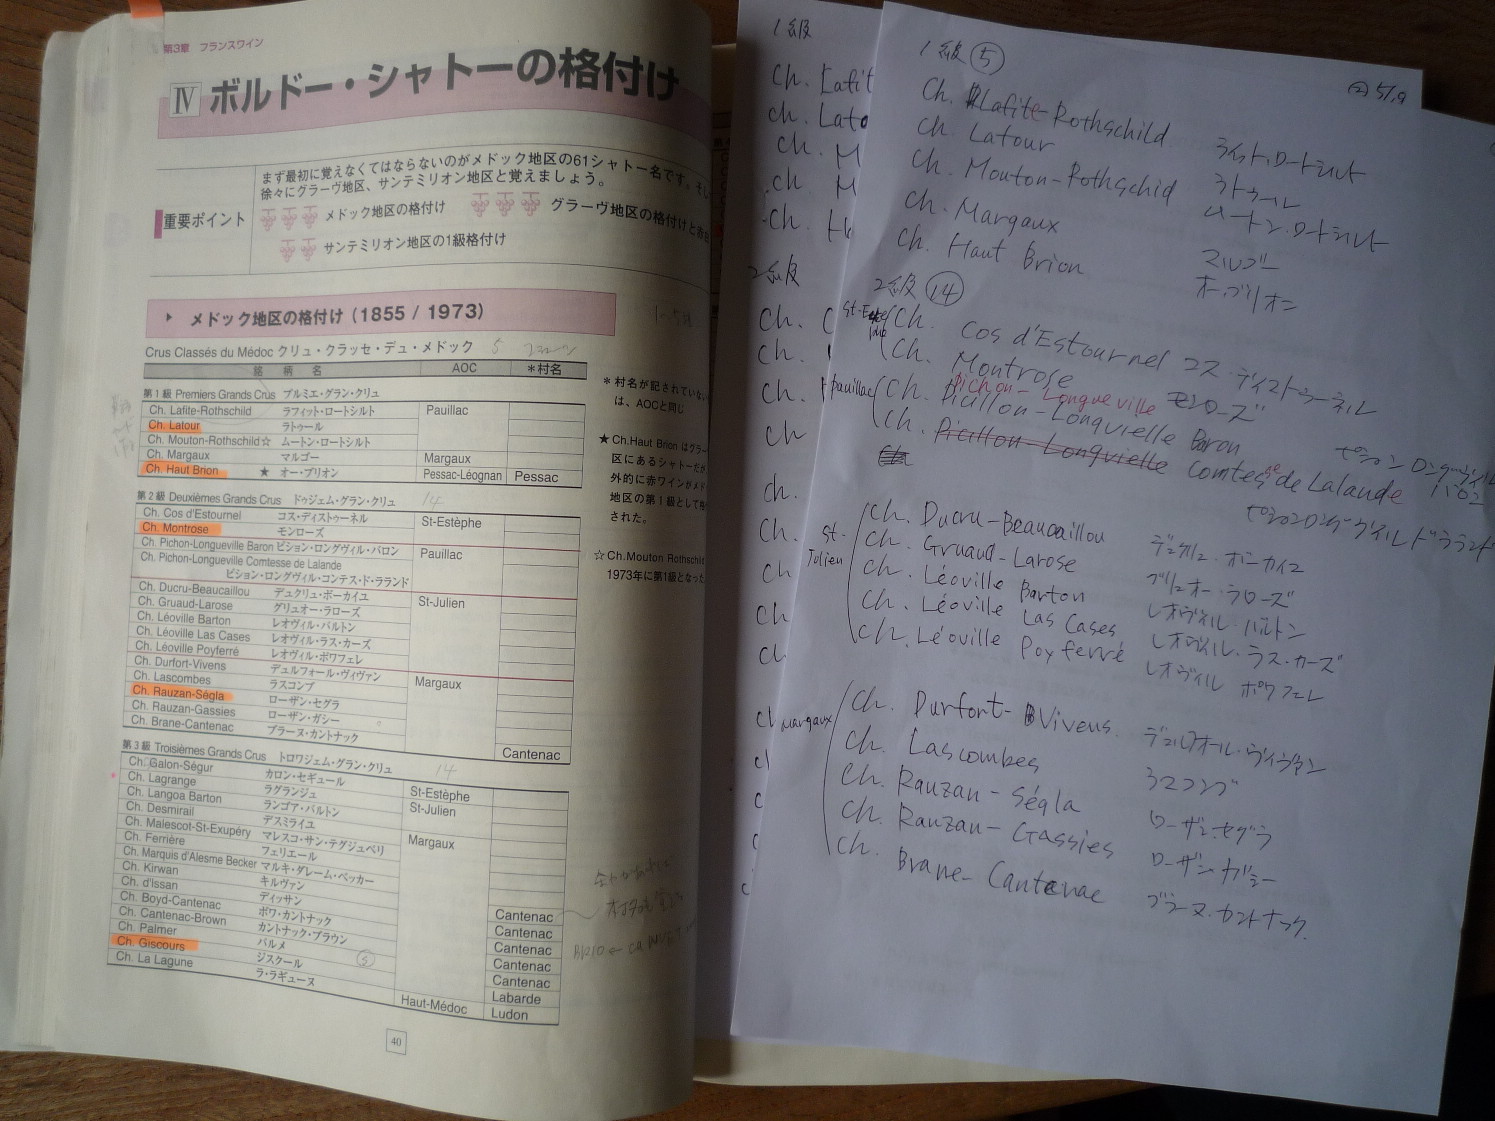 第3章 フランスワイン
Ⅳ ボルドー・シャトーの格付け
重要ポイント
まず最初に覚えなくてはならないのがメドック地区の61シャトー名です。そし
徐々にグラーヴ地区、サンテミリオン地区と覚えましょう。
メドック地区の格付け グラーヴ地区の格付けと
サンテミリオン地区の1級格付け
メドック地区の格付け(1855 / 1973)
Crus Classés du Médoc クリュ・クラッセ・デュ・メドック 5
銘柄名 AOC *村名
第1級 Premiers Grands Crus プルミエ・グラン・クリュ
Ch. Lafite-Rothschild ラフィット・ロートシルト Pauillac
Ch. Latour ラトゥール
Ch. Mouton-Rothschild☆ ムートン・ロートシルト
Ch. Margaux マルゴー Margaux
Ch. Haut Brion ★ オー・ブリオン Pessac-Léognan Pessac
第2級 Deuxièmes Grands Crus ドゥジェム・グラン・クリュ 14
Ch. Cos d'Estournel コス・ディストゥーネル St-Estèphe
Ch. Montrose モンローズ
Ch. Pichon-Longueville Baron ピション・ロングヴィル・バロン Pauillac
Ch. Pichon-Longueville Comtesse de Lalande
ピション・ロングヴィル・コンテス・ド・ラランド
Ch. Ducru-Beaucaillou デュクリュ・ボーカイユ St-Julien
Ch. Gruaud-Larose グリュオー・ラローズ
Ch. Léoville Barton レオヴィル・バルトン
Ch. Léoville Las Cases レオヴィル・ラス・カーズ
Ch. Léoville Poyferré レオヴィル・ポワフェレ
Ch. Durfort-Vivens デュルフォール・ヴィヴァン Margaux
Ch. Lascombes ラスコンブ
Ch. Rauzan-Ségla ローザン・セグラ
Ch. Rauzan-Gassies ローザン・ガシー
Ch. Brane-Cantenac ブラーヌ・カントナック Cantenac
第3級 Troisièmes Grands Crus トロワジェム・グラン・クリュ 14
Ch. Calon-Ségur カロン・セギュール St-Estèphe
Ch. Lagrange ラグランジュ St-Julien
Ch. Langoa Barton ランゴア・バルトン
Ch. Desmirail デスミライユ Margaux
Ch. Malescot-St-Exupéry マレスコ・サン・テグジュペリ
Ch. Ferrière フェリエール
Ch. Marquis d'Alesme Becker マルキ・ダレーム・ベッカー
Ch. Kirwan キルヴァン Cantenac
Ch. d'Issan ディッサン Cantenac
Ch. Boyd-Cantenac ボワ・カントナック Cantenac
Ch. Cantenac-Brown カントナック・ブラウン Cantenac
Ch. Palmer パルメ Cantenac
Ch. Giscours ジスクール Labarde
Ch. La Lagune ラ・ラギューヌ Haut-Médoc Ludon
*村名が記されていな
は、AOCと同じ
★Ch.Haut Brion はグラー
区にあるシャトーだが
外的に赤ワインがメド
地区の第1級として
された。
☆Ch.Mouton Rothschild
1973年に第1級となった
40
1級
Ch. Lafit
Ch. Lato
Ch. M
Ch. M
Ch. H
2級
Ch. C
Ch.
Ch.
Ch
Ch.
Ch.
Ch
Ch
Ch
1級 ⑤
Ch. Lafite-Rothschild ラフィット・ロートシルト
Ch. Latour ラトゥール
Ch. Mouton-Rothschid ムートン・ロートシルト
Ch. Margaux マルゴー
Ch. Haut Brion オー・ブリオン
2級 ⑭
Ch. Cos d'Estournel コス・ディストゥーネル
Ch. Montrose モンローズ
Pauillac Ch. Picillon-Longvielle Baron ピションロングヴィル バロン
Pichon-Longueville
Ch. Picillon Longvielle Comtesse de Lalande
St-Julien Ch. Ducru-Beaucaillou デュクリュ・ボーカイユ
Ch. Gruaud-Larose グリュオー・ラローズ
Ch. Léoville Barton レオヴィル バルトン
Ch. Léoville Las Cases レオヴィル・ラス・カーズ
Ch. Léoville Poyferré レオヴィル ポワフェレ
Margaux Ch. Durfort-Vivens デュルフォール・ヴィヴァン
Ch. Lascombes ラスコンブ
Ch. Rauzan-Ségla ローザン・セグラ
Ch. Rauzan-Gassies ローザン・ガシー
Ch. Brane-Cantenac ブラーヌ・カントナック